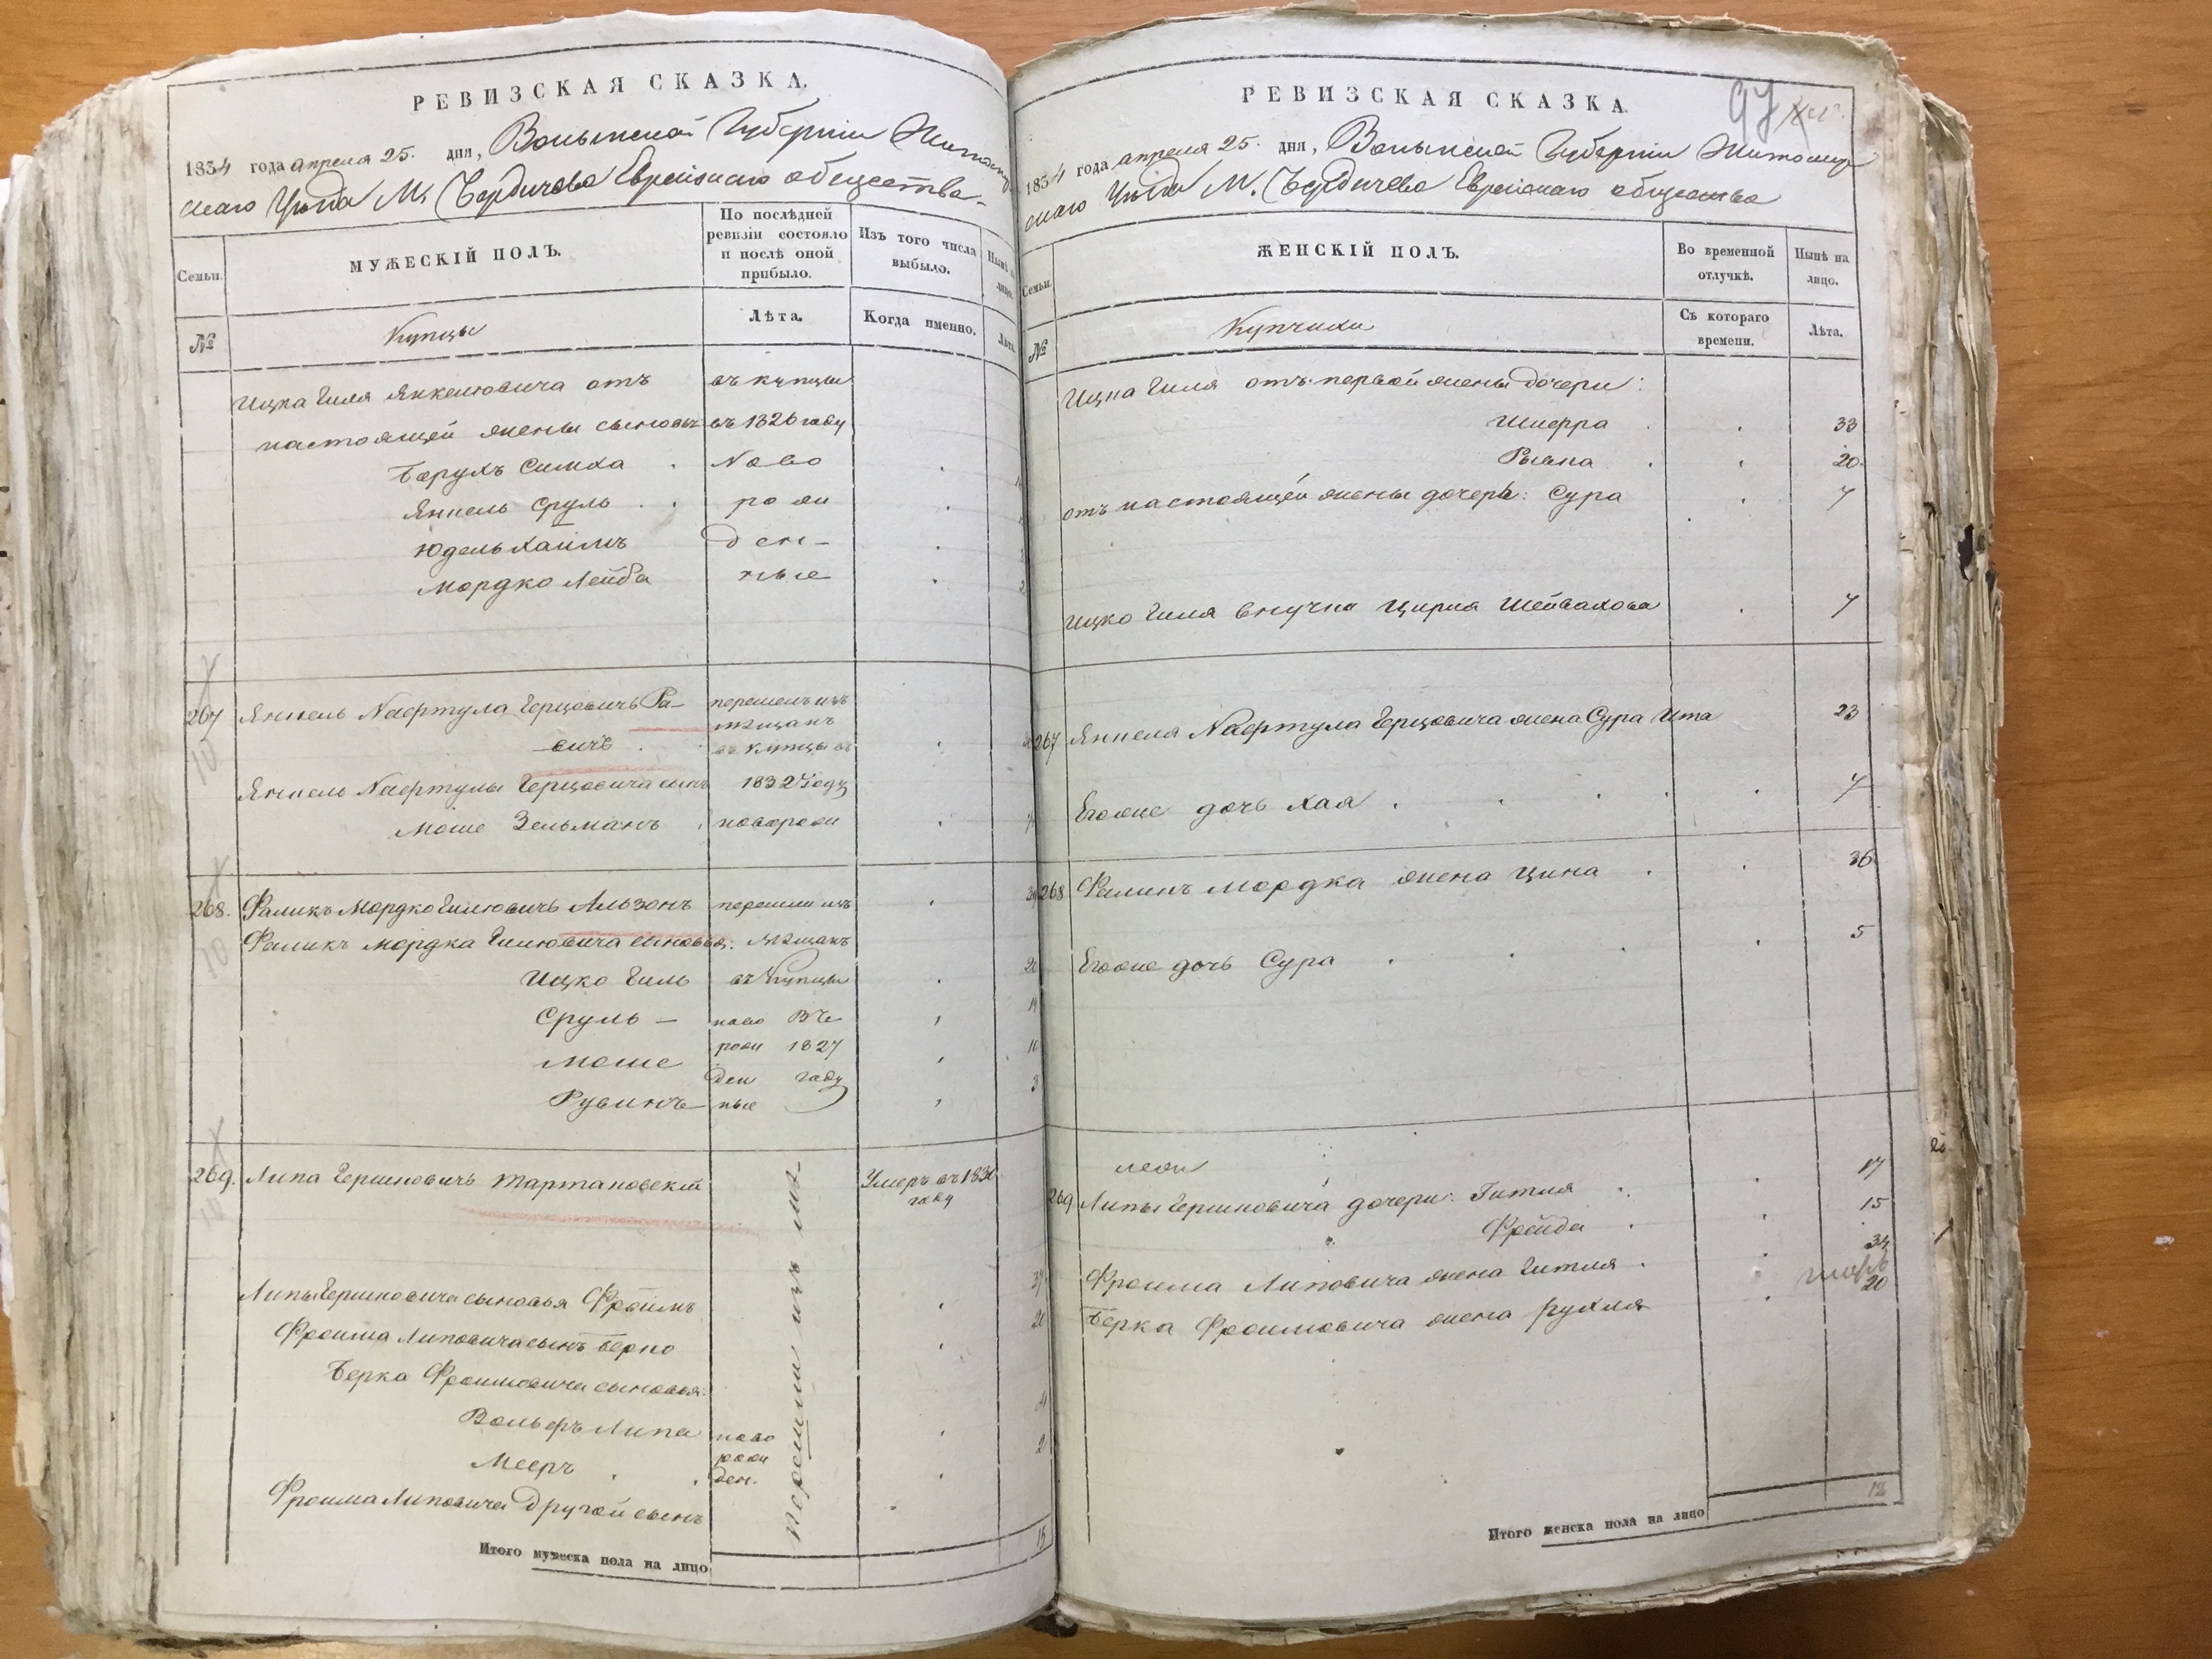 РЕВИЗСКАЯ СКАЗКА.
1834 года апреля 25. дня, Волынской Губернiи Житомир
скаго Уѣзда М. Бердичева Еврейскаго общества
Семьи.
МУЖЕСКIЙ ПОЛЪ.
По послѣдней ревизiи состояло и послѣ оной прибыло.
Изъ того числа выбыло.
Нынѣ на лицо.
№
Купцы
Лѣта.
Когда именно.
Лѣта.
Ицка Гиля Янкелювича отъ въ купцы
настоящей жены сыновья въ 1826 году
Борухъ Симха . Ново
Янкель Сруль . . рож
Юдель Хаимъ ден-
Мордко Лейба ные
267 Янкель Нафтула Герцовичъ Ра- перешелъ изъ
мѣщанъ
вичъ . въ купцы въ
Янкель Нафтулы Герцовича сынъ 1832 году
Моше Зельманъ . поворожд
268. Фаликъ Мордко Гилювичъ Альзонъ перешли изъ
Фаликъ Мордка Гилювича сыновья: мѣщанъ
Ицко Гиль въ Купцы 20
Сруль — ново Въ 14
Моше рож 1827 10
ден году 3
Рувинъ ные
269. Липа Гершковичъ Тартаковскiй Умеръ въ 1830
году
перешли изъ
Липы Гершковича сыновья Фроимъ 37
Фроима Липовича сынъ Берко 20
Берка Фроимовича сыновья:
Вольфъ Липа ново 4
Мееръ . . рож 2
ден.
Фроима Липовича другой сынъ
Итого мужеска пола на лицо 15
РЕВИЗСКАЯ СКАЗКА.
97
1834 года апреля 25. дня, Волынской Губернiи Житомир
скаго Уѣзда М. Бердичева Еврейскаго общества
Семьи.
ЖЕНСКIЙ ПОЛЪ.
Во временной отлучкѣ.
Нынѣ на лицо.
№
Купчихи
Съ котораго времени.
Лѣта.
Ицка Гиля отъ первой жены дочери:
Шифра . 33
Рывка . 20
отъ настоящей жены дочерь: Сура 7
Ицко Гиля внучка Цирля Шейвахова 7
267 Янкеля Нафтула Герцовича жена Сура Ита 23
Егоже дочь Хая . 7
268 Фаликъ Мордка жена Цина . 36
Егоже дочь Сура . 5
269 Липы Гершковича дочери: Гитля 17
Фрейда . 15
Фроима Липовича жена Гитля . 34
Берка Фроимовича жена Рухля 20
Итого женска пола на лицо 12